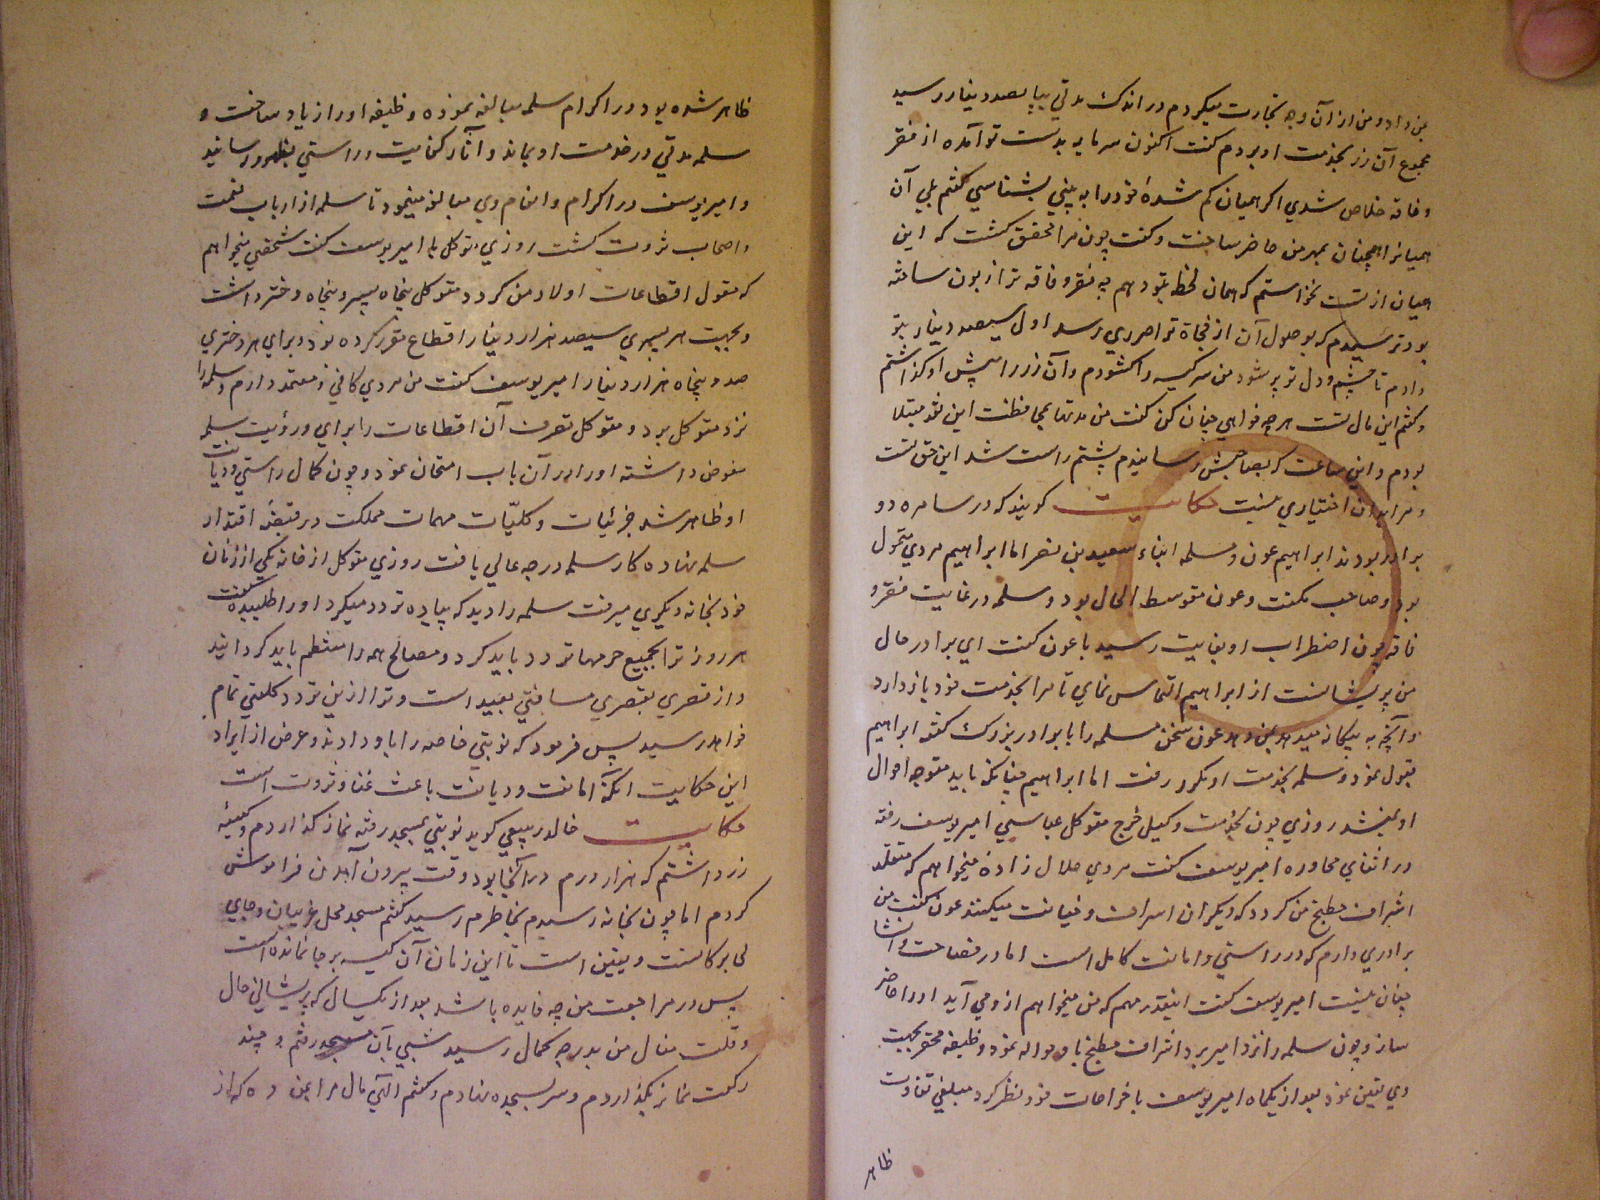 بمن داد و من از آن وجه تجارت میکردم در اندک مدتی بپانصد دینار رسید
مجموع آن زر بخدمت او بردم کفت اکنون سرمایه بدست تو آمده از فقر
و فاقه خلاص شدی اکر همیان کم شدهٔ خود را به بینی بشناسی کفتم بلی آن
همیانرا همچنان بمهر من حاضر ساخت و کفت چون مرا محقق کشت که این
همیان از تست نخواستم که همان لحظه بتو دهم چه فقر و فاقه ترا زبون ساخته
بود ترسیدم که بوصول آن از فجاة ترا ضرری رسد اول سیصد دینار بتو
دادم تا چشم و دل تو پر شود من سر کیسه را کشودم و آن زر را پیش او کذاشتم
و کفتم این مال تست هر چه خواهی چنان کن کفت من مدتها بمحافظت این نقد مبتلا
بودم و این ساعت که بصاحبش رسانیدم پشتم راست شد این حق تست
و مرا بدان اختیاری نیست حکایت کویند که در سامره دو
برادر بودند ابراهیم عون و مسلمه ابناء سعید بن نصر اما ابراهیم مردی متمول
بود و صاحب مکنت و عون متوسط الحال بود و سلمه در غایت فقر و
فاقه چون اضطراب او بغایت رسید با عون کفت ای برادر حال
من پریشانست از ابراهیم التماس نمای تا مرا بخدمت خود باز دارد
و آنچه به بیکانه میدهد بمن دهد عون سخن مسلمه را با برادر بزرک کفته ابراهیم
قبول نمود و سلمه بخدمت او بکرور رفت اما ابراهیم چنانکه باید متوجه احوال
او نمیشد روزی چون بخدمت وکیل خرج متوکل عباسی امیر یوسف رفته
در اثنای محاوره امیر یوسف کفت مردی حلال زاده میخواهم که متقلد
اشراف مطبخ من کردد که دیکران اسراف و خیانت میکنند عون کفت من
برادری دارم که در راستی و امانت کامل است اما در فصاحت و انشا
چنان نیست امیر یوسف کفت اینقدر مهم که من میخواهم از وی می آید او را حاضر
ساز و چون سلمه را نزد امیر برد اشراف مطبخ باو حواله نمود و وظیفه محقر بجهت
وی تعیین نمود بعد از یکماه امیر یوسف باخراجات خود نظر کرد مبلغی تفاوت
ظاهر
ظاهر شده بود در اکرام سلمه مبالغه نموده وظیفه او را زیاد ساخت و
سلمه مدتی در خدمت او بماند و آثار کفایت و راستی بظهور رسانید
و امیر یوسف در اکرام و انعام وی مبالغه مینمود تا سلمه از ارباب نعمت
و اصحاب ثروت کشت روزی متوکل با امیر یوسف کفت شخصی میخواهم
که متولی اقطاعات اولاد من کردد متوکل پنجاه پسر و پنجاه دختر داشت
و بجهت هر پسری سیصد هزار دینار اقطاع مقرر کرده بود و برای هر دختری
صد و پنجاه هزار دینار امیر یوسف کفت من مردی کافی و معتمد دارم و سلمه را
نزد متوکل برد و متوکل تصرف آن اقطاعات را برای و رؤیت سلمه
مفوض داشته او را در آن باب امتحان نمود و چون کمال راستی و دیانت
او ظاهر شد جزئیات و کلیّات مهمات مملکت در قبضه اقتدار
سلمه نهاده کار سلمه درجه عالی یافت روزی متوکل از خانه یکی از زنان
خود بخانه دیکری میرفت سلمه را دید که پیاده تردد میکرد او را طلبیده کفت
هر روز ترا بجمیع حرمها تردد باید کرد و مصالح همه را منتظم باید کردانید
و از قصری بقصری مسافتی بعید است و ترا ازین تردد کلفتی تمام
خواهد رسید پس فرمود که نوبتی خاصه را باو دادند و غرض از ایراد
این حکایت آنکه امانت و دیانت باعث غنا و ثروت است
حکایت خالد ربیعی کوید نوبتی بمسجد رفته نماز کذاردم و کیسهٔ
زر داشتم که هزار درم در آنجا بود وقت بیرون آمدن فراموش
کردم اما چون بخانه رسیدم بخاطرم رسید کفتم مسجد محل غریبان و جای
است و یقین است تا این زمان آن کیسه بر جا نمانده است
پس در مراجعت من چه فایده باشد بعد از یکسال که پریشانی حال
و قلت منال من بدرجه کمال رسید شبی بآن مسجد رفتم و چند
رکعت نماز بکذاردم و سر بسجده نهادم و کفتم الهی مال مرا بمن ده که از